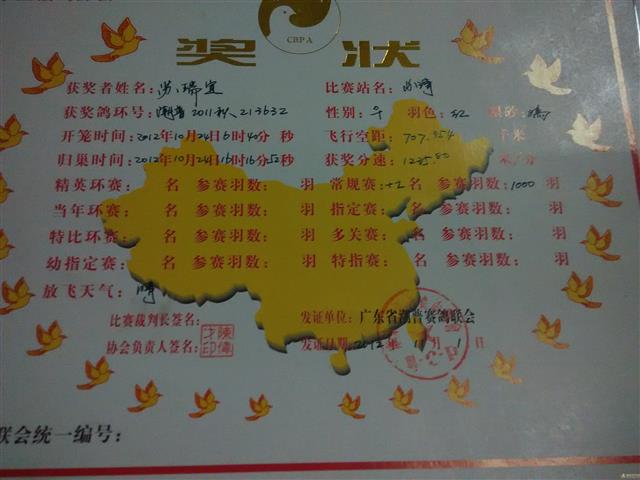 CBPA
奖 状
获奖者姓名: 瑞宜 比赛站名:
获奖鸽环号: 2011 213632 性别: 羽色: 红 眼砂:
开笼时间: 2012年10月24日6时40分 秒 飞行空距: 707.954 千米
归巢时间: 2012年10月24日16时16分52秒 获奖分速: 米/分
精英环赛: 名 参赛羽数: 羽 常规赛: 名 参赛羽数: 1000 羽
当年环赛: 名 参赛羽数: 羽 指定赛: 名 参赛羽数: 羽
特比环赛: 名 参赛羽数: 羽 多关赛: 名 参赛羽数: 羽
幼指定赛: 名 参赛羽数: 羽 特指赛: 名 参赛羽数: 羽
放飞天气: 晴
比赛裁判长签名: 发证单位: 广东省潮普赛鸽联会
协会负责人签名: 发证日期: 2012年11月1日
联会统一编号: